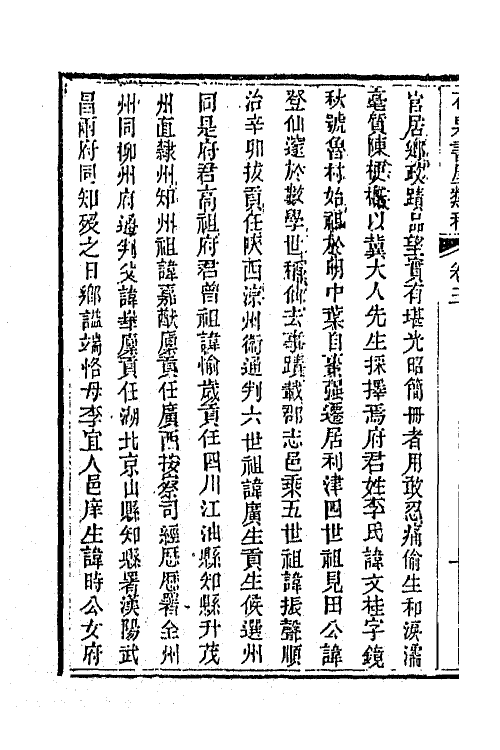 石泉書屋類稿 卷三
官居鄉政蹟品望實有堪光昭簡冊者用敢忍痛偷生和淚濡
毫質陳梗概以冀大人先生採擇焉府君姓李氏諱文桂字鏡
秋號魯村始祖於明中葉自棗强遷居利津四世祖見田公諱
登仙邃於數學世稱仙去事蹟載郡志邑乘五世祖諱振聲順
治辛卯拔貢任陝西涼州衞通判六世祖諱廣生貢生候選州
同是府君高祖府君曾祖諱愉歲貢任四川江油縣知縣升茂
州直隸州知州祖諱嘉猷廩貢任廣西按察司經歷歷署全州
州同柳州府通判父諱華廩貢任湖北京山縣知縣署漢陽武
昌兩府同知歿之日鄉諡端恪母李宜人邑庠生諱時公女府